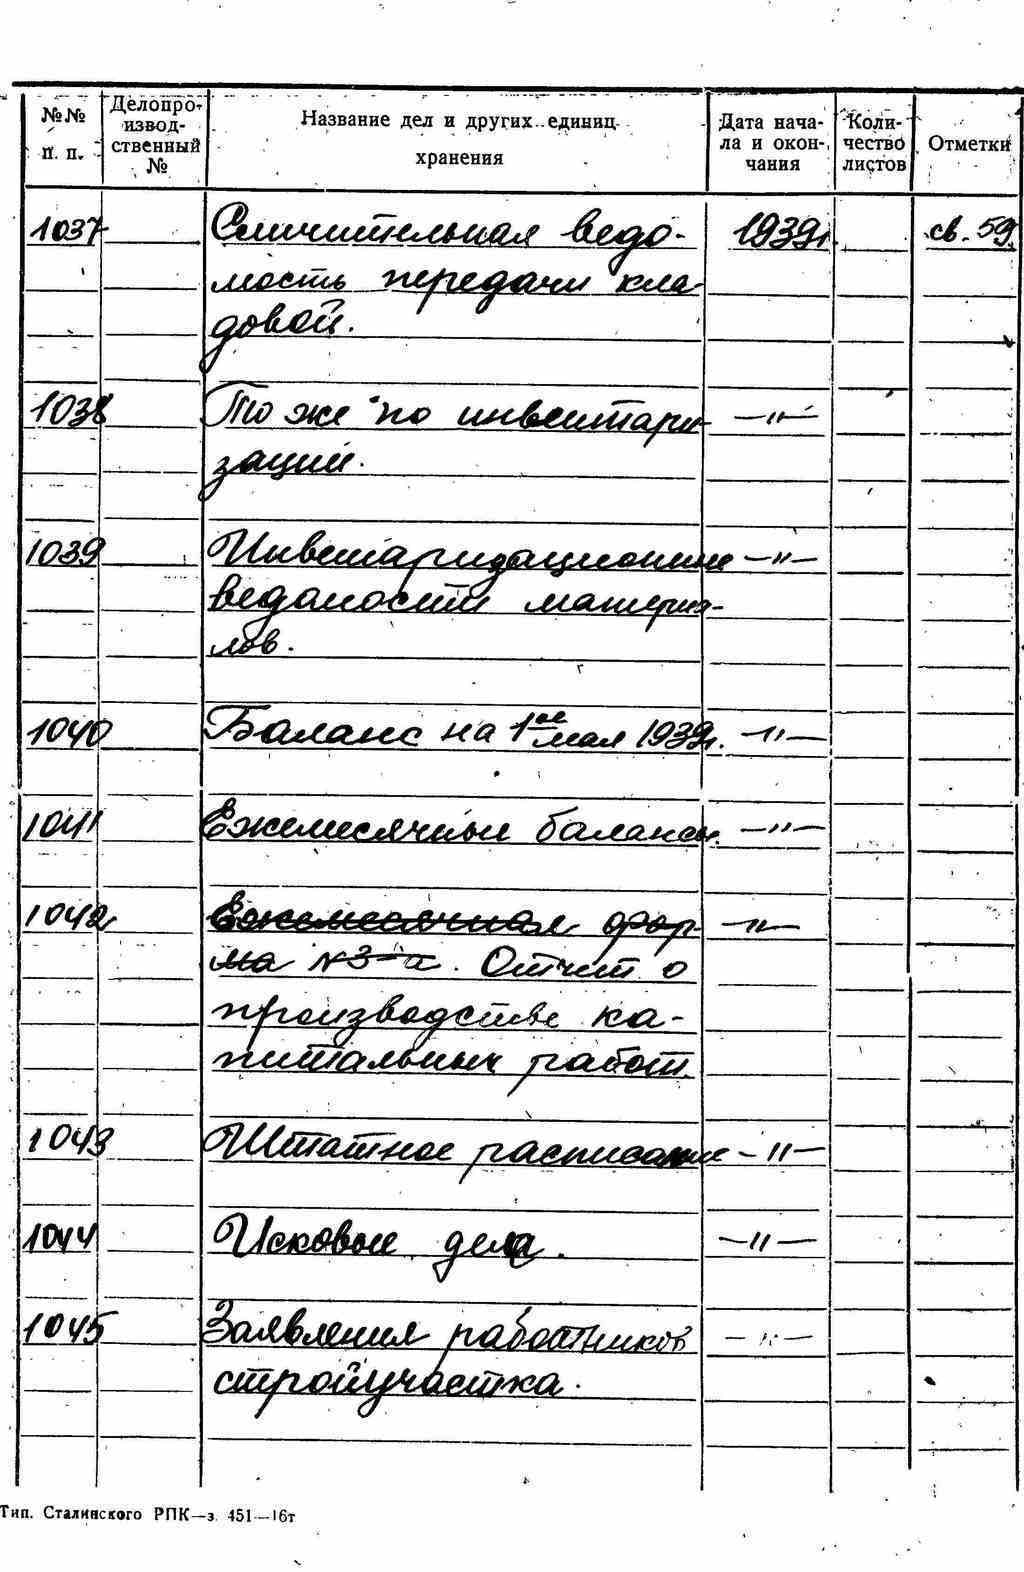 №№ п. п.
Делопроизводственный №
Название дел и других единиц хранения
Дата начала и окончания
Количество листов
Отметки
1037 Сличительная ведо- 1939г. св. 59.
мость передачи кла-
довой.
1038 То же по инвентари- —"—
зации.
1039 Инвентаризационные —"—
ведомости материа-
лов.
1040 Баланс на 1ое мая 1939г. —"—
1041 Ежемесячные балансы. —"—
1042 Ежемесячная фор- —"—
ма №3-а. Отчет о
производстве ка-
питальных работ.
1043 Штатное расписание —"—
1044 Исковые дела. —"—
1045 Заявления работников —"—
стройучастка.
Тип. Сталинского РПК—з. 451—16т